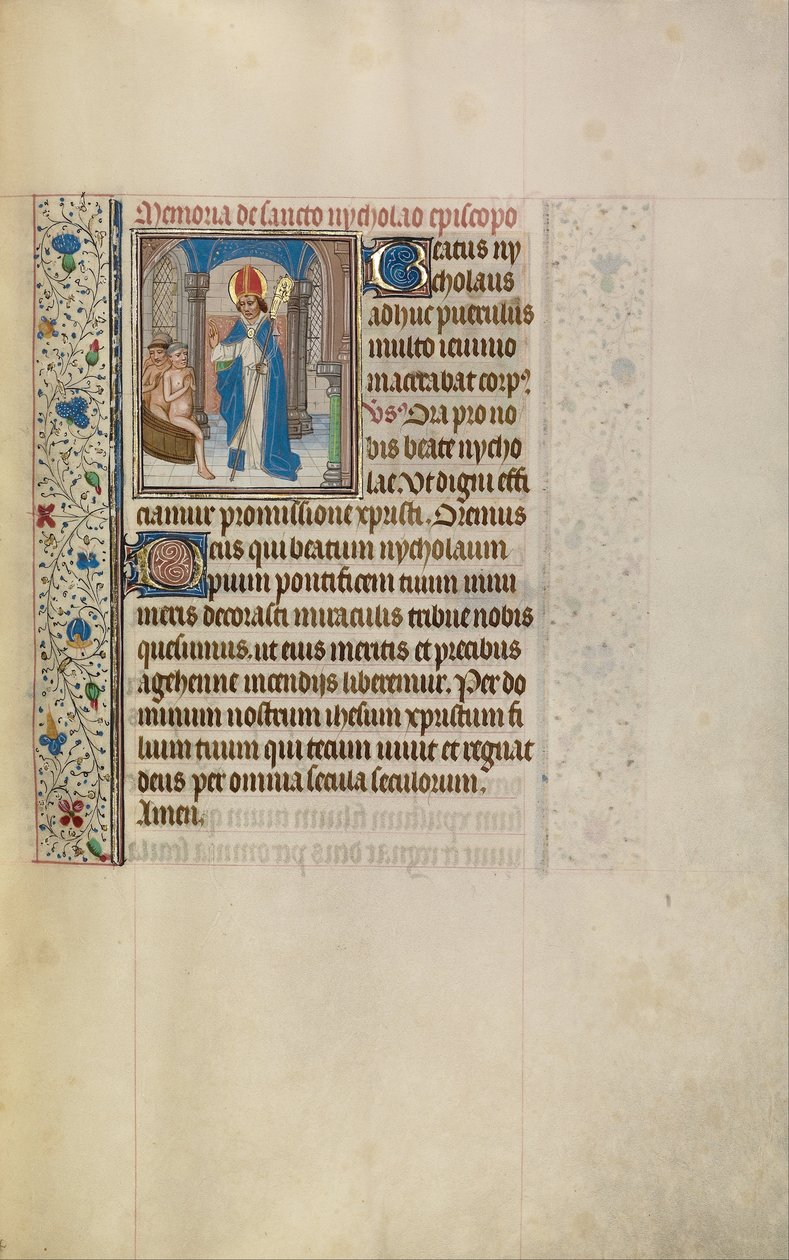 Memoria de sancto nycholao episcopo
Beatus ny
cholaus
adhuc puerulus
multo ieiunio
macerabat corpꝰ
Vsꝰ Ora pro no
bis beate nycho
lae. Vt digni effi
ciamur promissione xpristi. Oremus
Deus qui beatum nycholaum
pium pontificem tuum innu
meris decorasti miraculis tribue nobis
quesumus. ut eius meritis et precibus
a gehenne incendijs liberemur. Per do
minum nostrum ihesum xpristum fi
lium tuum qui tecum uiuit et regnat
deus per omnia secula seculorum.
Amen.